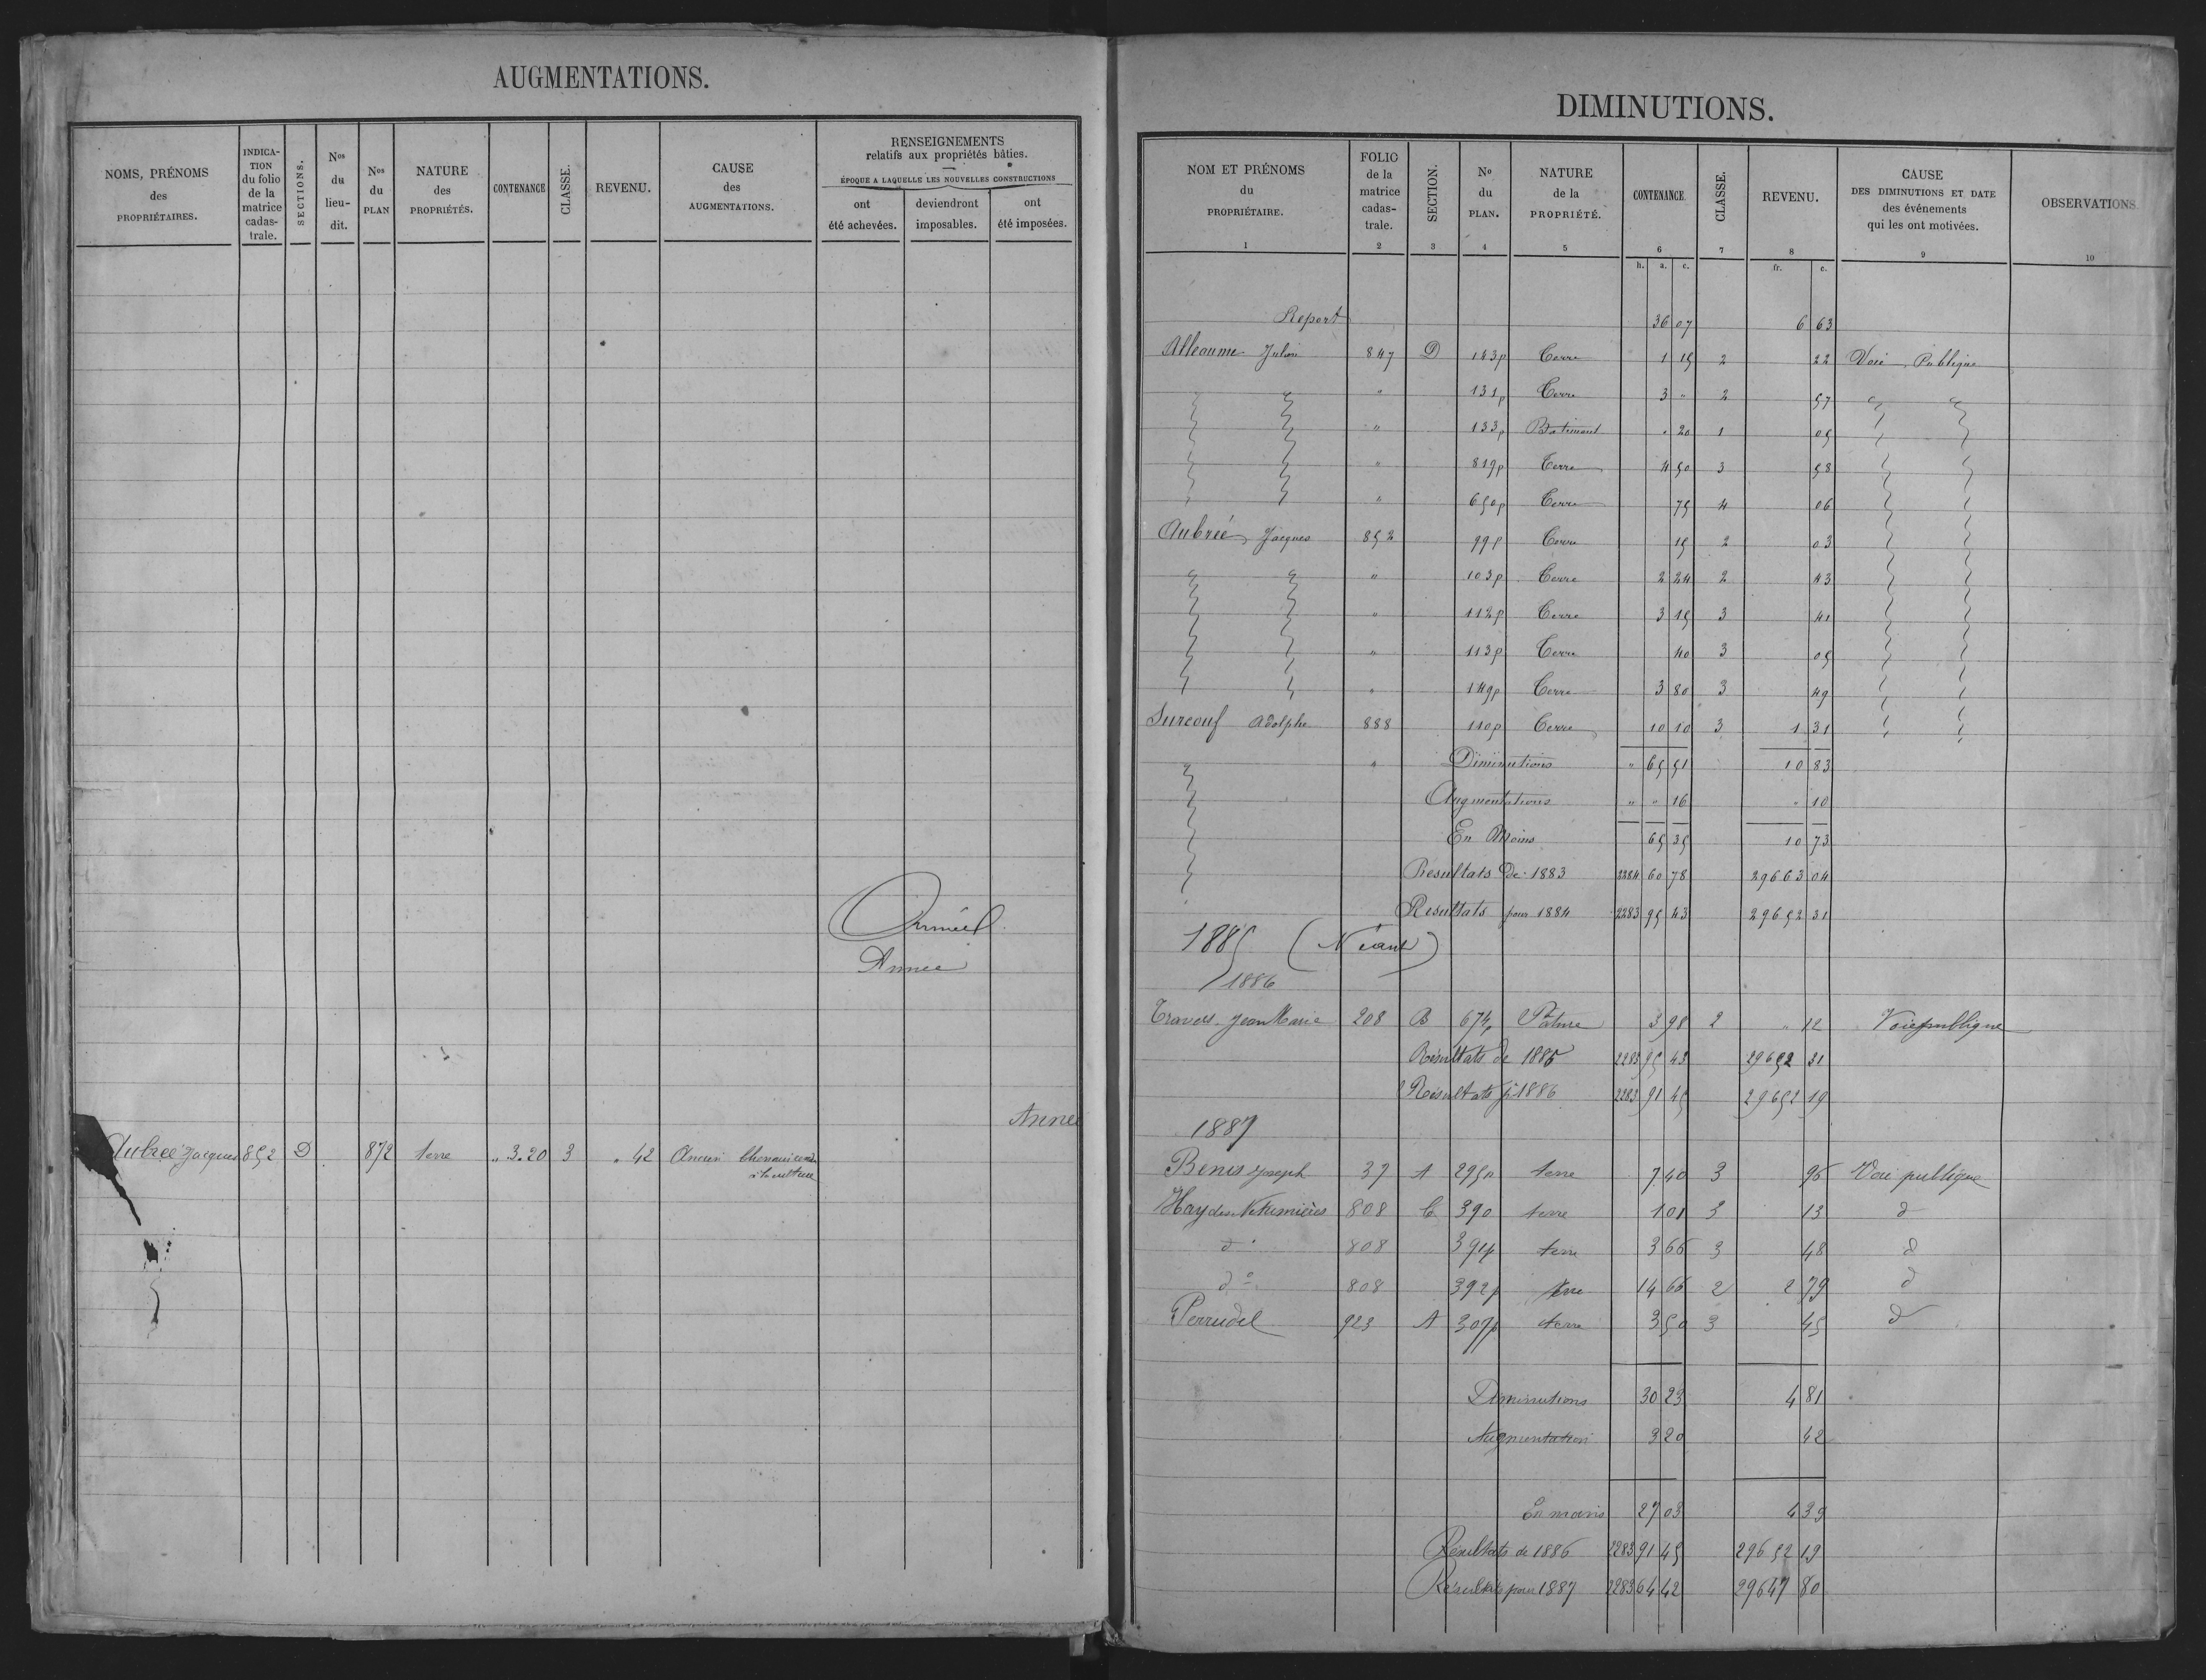 AUGMENTATIONS.
NOMS, PRÉNOMS des PROPRIÉTAIRES.
INDICA-TION du folio de la matrice cadas-trale.
SECTIONS.
Nos du lieu-dit.
Nos du PLAN
NATURE des PROPRIÉTÉS.
CONTENANCE
CLASSE.
REVENU.
CAUSE des AUGMENTATIONS.
RENSEIGNEMENTS relatifs aux propriétés bâties.
ÉPOQUE A LAQUELLE LES NOUVELLES CONSTRUCTIONS
ont été achevées.
deviendront imposables.
ont été imposées.
Année
Année
Aubrée Jacques 852 D 872 terre " 3.20 3 " 42 Ancien Chemin rendu
à la culture
DIMINUTIONS.
NOM ET PRÉNOMS du PROPRIÉTAIRE. 1
FOLIO de la matrice cadas-trale. 2
SECTION. 3
No du PLAN. 4
NATURE de la PROPRIÉTÉ. 5
CONTENANCE. 6
CLASSE. 7
REVENU. 8
CAUSE DES DIMINUTIONS ET DATE des événements qui les ont motivées. 9
OBSERVATIONS. 10
h. a. c. fr. c.
Report 36 07 6 63
Alleaume Julien 847 D 143p Terre 1 15 2 22 Voie Publique
" 131p Terre 3 " 2 57
" 133p Batiment " 20 1 05
" 819p Terre 4 50 3 58
" 650p Terre 75 4 06
Aubrée Jacques 852 99p Terre 15 2 03
" 103p Terre 2 24 2 43
" 112p Terre 3 15 3 41
" 113p Terre 40 3 05
" 149p Terre 3 80 3 49
Surcouf Adolphe 888 110p Terre 10 10 3 1 31
" Diminutions " 65 51 10 83
Augmentations " " 16 " 10
En Moins 65 35 10 73
Resultats De 1883 2284 60 78 29663 04
Resultats pour 1884 2283 95 43 29652 31
1885 (Néant)
1886
Travers Jean Marie 208 B 674p Pature 3 98 2 " 12 Voie publique
Résultats de 1885 2283 95 43 29652 31
Résultats pr 1886 2283 91 45 29652 19
1887
Benis Joseph 37 A 295p terre 7 40 3 96 Voie publique
Hay des Nétumières 808 C 390 terre 1 01 3 13 d
do 808 391p terre 3 66 3 48 d
do 808 392p terre 14 66 2 2 79 d
Perrudel 923 A 307p terre 3 50 3 45 d
Diminutions 30 23 4 81
Augmentation 3 20 42
En moins 27 03 4 39
Résultats de 1886 2283 91 45 29652 19
Résultats pour 1887 2283 64 42 29647 80